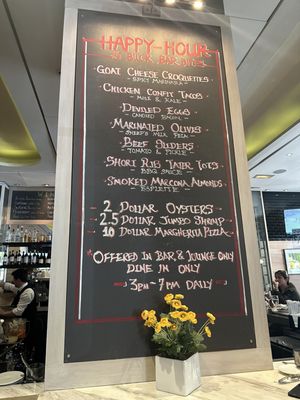 HAPPY-HOUR
10 BUCK BAR BITES
GOAT CHEESE CROQUETTES
- SPICY MARINARA -
CHICKEN CONFIT TACOS
- MOLE & KALE -
DEVILED EGGS
- CANDIED BACON -
MARINATED OLIVES
- SHEEP'S MILK FETA -
BEEF SLIDERS
- TOMATO & PICKLE -
SHORT RIB TATER TOTS
- BBQ SAUCE -
SMOKED MARCONA ALMONDS
- ESPELETTE -
2 DOLLAR OYSTERS
2.5 DOLLAR JUMBO SHRIMP
10 DOLLAR MARGHERITA PIZZA
*OFFERED IN BAR & LOUNGE ONLY
DINE IN ONLY
3PM - 7PM DAILY